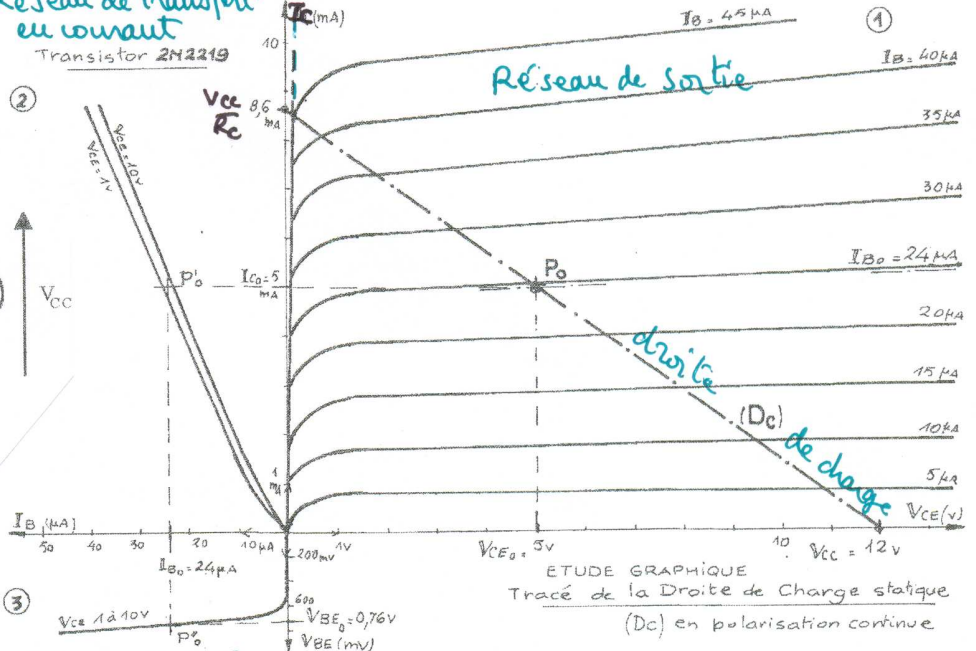 Réseau de transfert
en courant
Transistor 2N2219
②
VCE = 1V
VCE = 10V
VCC
P'o
IC (mA)
10
VCC
RC
8,6
mA
ICo = 5
mA
1
mA
IB = 45 µA
①
Réseau de sortie
IB = 40 µA
35 µA
30 µA
IBo = 24 µA
20 µA
15 µA
10 µA
5 µA
Po
droite
(Dc)
de charge
VCE (V)
IB (µA)
50
40
30
20
10 µA
200mV
1V
VCEo =
5V
10
VCC = 12V
IBo = 24 µA
③
VCE 1 à 10V
P"o
600
VBEo = 0,76V
VBE (mV)
ETUDE GRAPHIQUE
Tracé de la Droite de Charge statique
(Dc) en polarisation continue